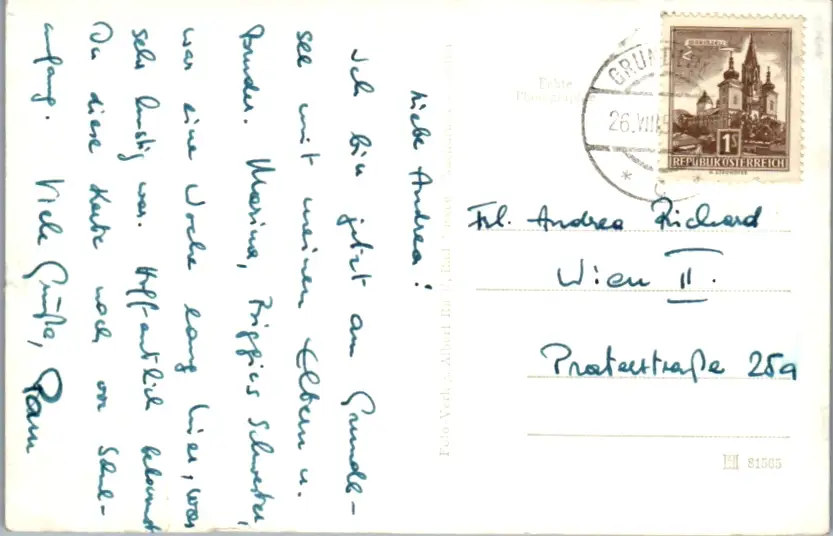 Liebe Andrea!
Ich bin jetzt am Grundl-
see mit meinen Eltern u.
Bruder. Marina, Schwester,
war eine Woche lang hier, was
sehr lustig war. Hoffentlich bekommst
Du diese Karte noch vor Schul-
anfang. Viele Grüße,
Pam
Echte
Photographie
Foto-Verlag Albert
GRUNDL
26.VIII.5
MARIAZELL
1S
REPUBLIK ÖSTERREICH
Frl. Andrea Richard
Wien II.
Praterstraße 25a
81565